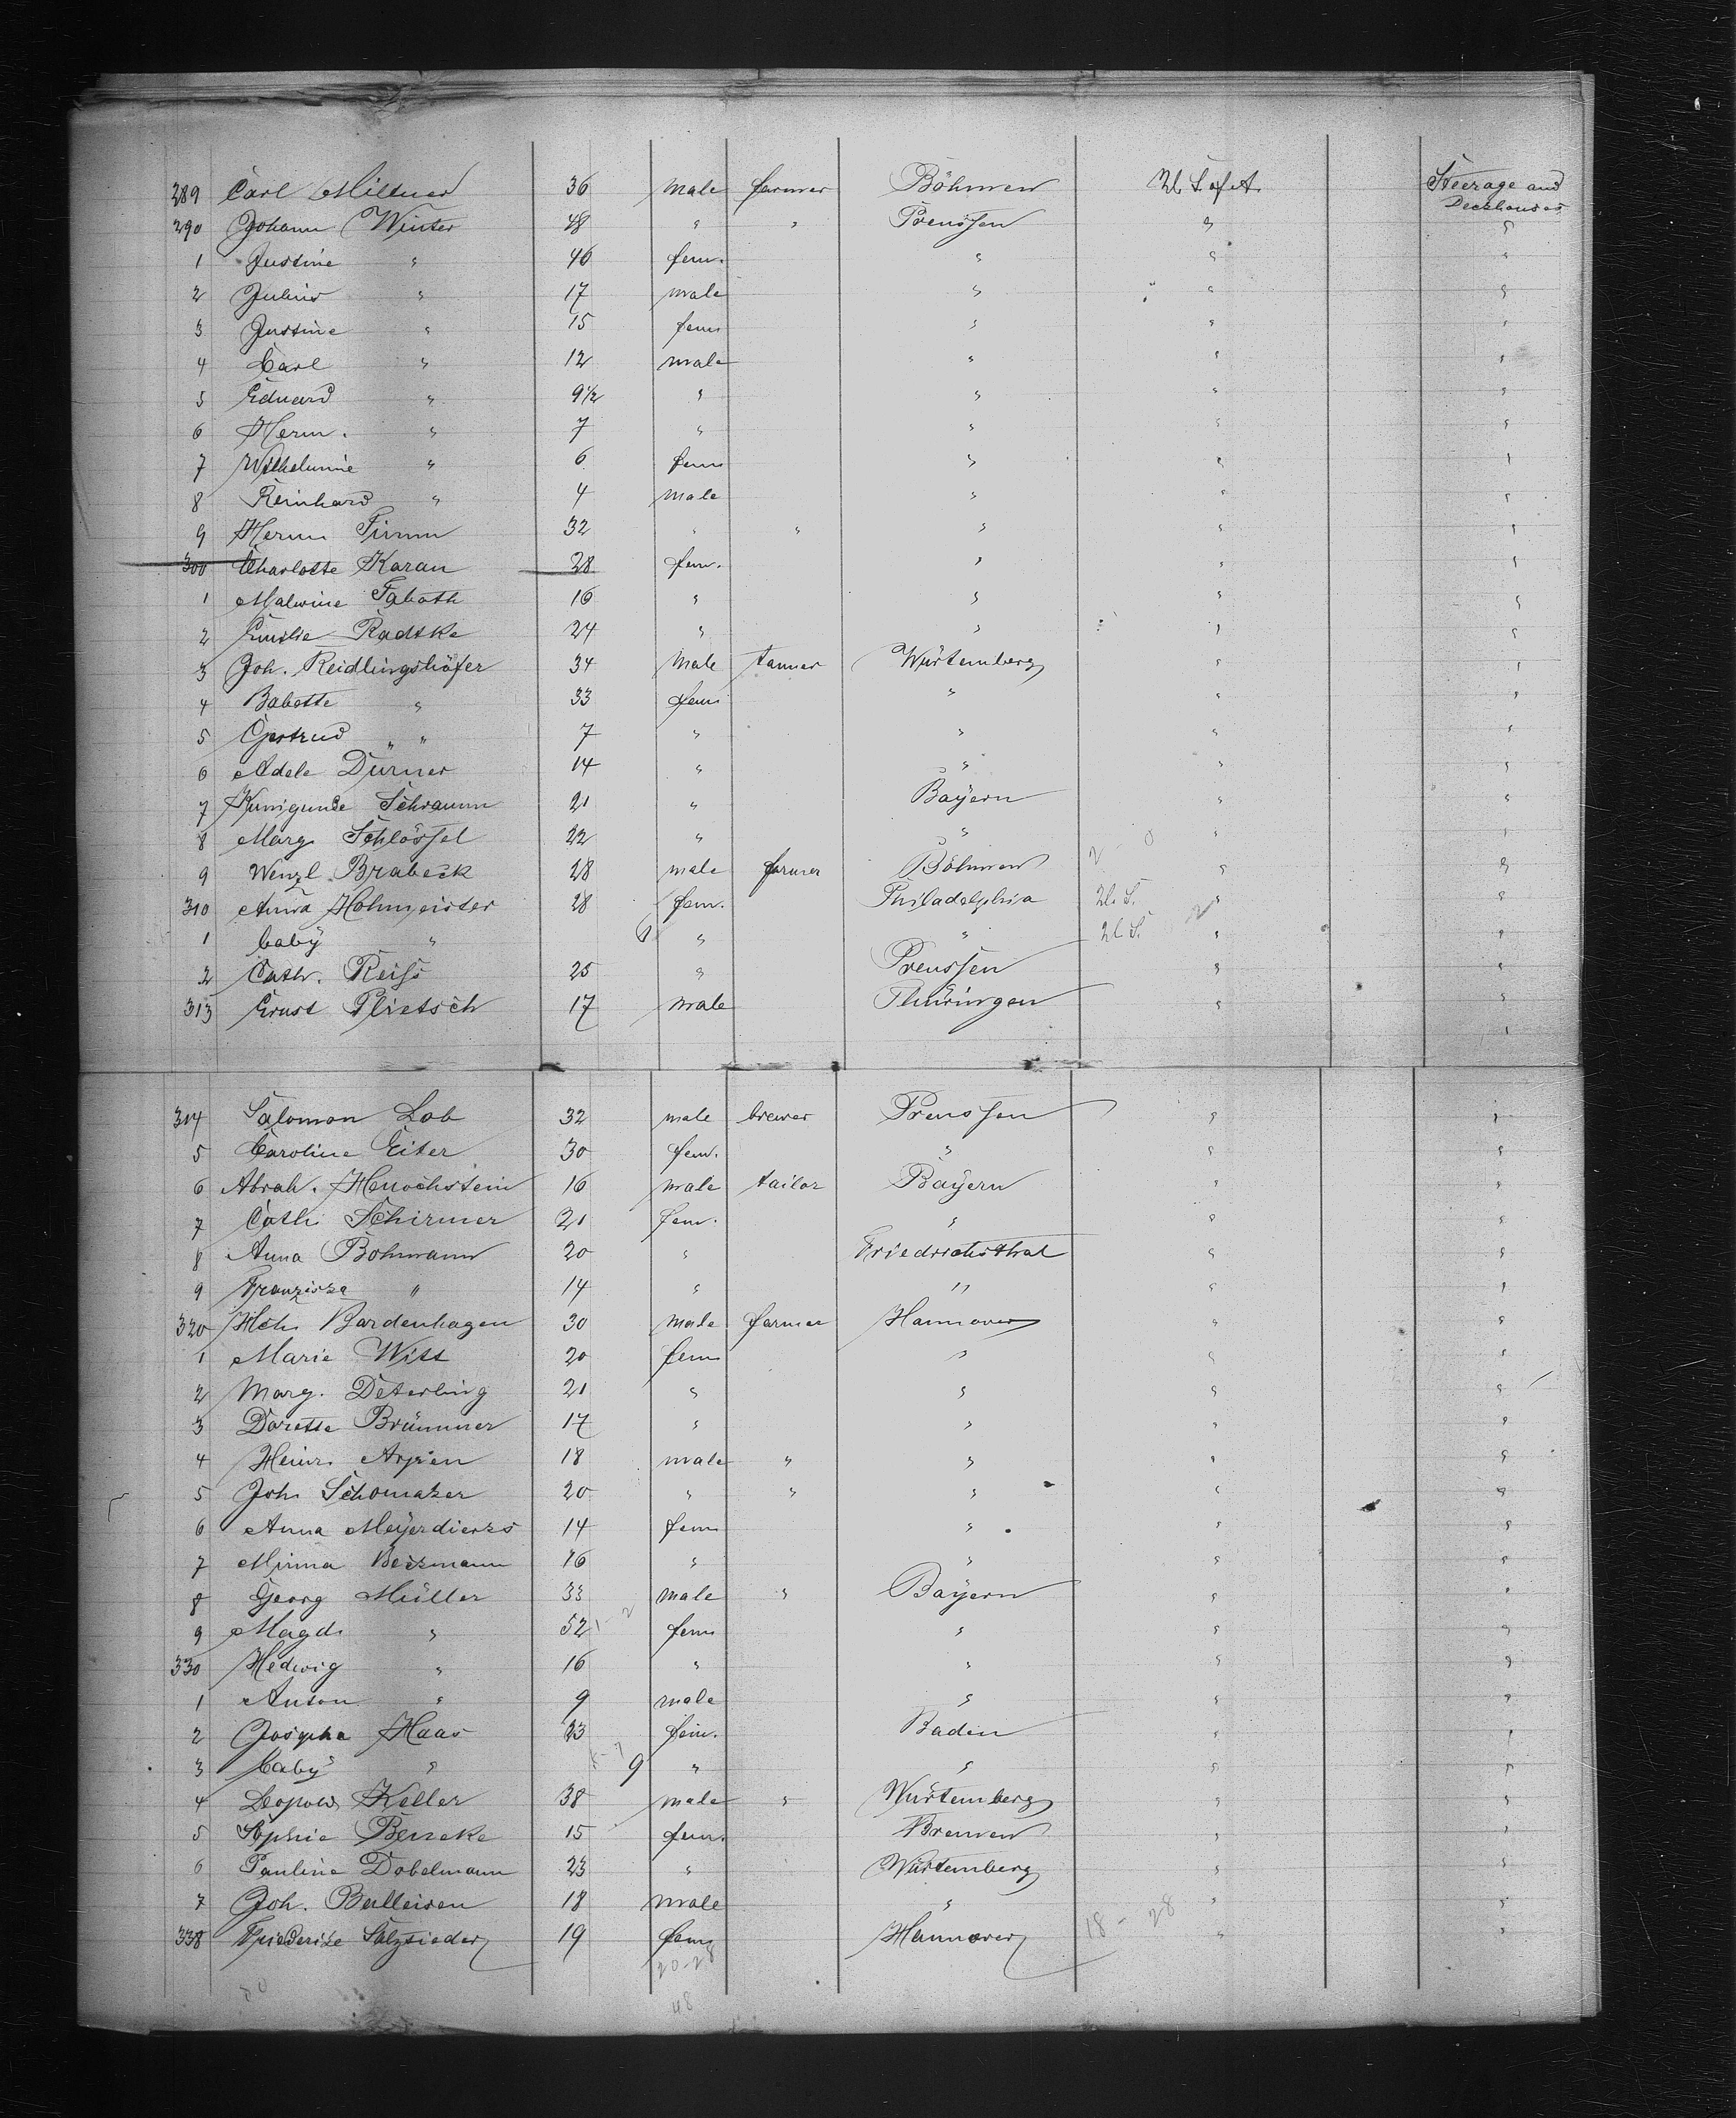 289 Carl Miltner 36 male farmer Böhmen U. S. of A. Steerage and
Deckhouses
290 Johann Winter 48 " " Preussen " "
1 Justine " 46 fem. " " "
2 Julius " 17 male " " "
3 Justine " 15 fem " " "
4 Carl " 12 male " " "
5 Eduard " 9½ " " " "
6 Herm. " 7 " " " "
7 Wilhelmine " 6 fem " " "
8 Reinhard " 4 male " " "
9 Herm Timm 32 " " " " "
300 Charlotte Karau 28 fem. " " "
1 Malwine Tabath 16 " " " "
2 Emilie Radtke 24 " " " "
3 Joh. Reidlingshöfer 34 male tanner Würtemberg " "
4 Babette " 33 fem " " "
5 Gertrud " " 7 " " " "
6 Adele Durner 14 " " " "
7 Kunigunde Schramm 21 " Bayern " "
8 Marg Schlössel 22 " " " "
9 Wenzl Brabeck 28 male farmer Böhmen " "
310 Anna Hohmeister 28 fem. Philadelphia U. S. " "
1 baby " 6 " " U. S. " "
2 Cath. Reiss 25 " Preussen " "
313 Ernst Plietsch 17 male Thüringen " "
"
314 Salomon Lob 32 male brewer Preussen " "
5 Caroline Eiter 30 fem. " " "
6 Abrah. Henochstein 16 male tailor Bayern " "
7 Cath Schirmer 21 fem. " " "
8 Anna Bohmann 20 " Friedrichsthal " "
9 Franziska " 14 " " " "
320 Hch Bardenhagen 30 male farmer Hannover " "
1 Marie Witt 20 fem " " "
2 Marg. Deterling 21 " " " "
3 Dorette Brümmer 17 " " " "
4 Heinr. Arpen 18 male " " " "
5 Joh Schomaker 20 " " " " "
6 Anna Meyerdierks 14 fem " " "
7 Minna Beckmann 16 " " " "
8 Georg Müller 33 male " Bayern " "
9 Magd " 52 fem " " "
330 Hedwig " 16 " " " "
1 Anton " 9 male " " "
2 Josepha Haas 23 fem. Baden " "
3 baby " 9 " " " "
4 Leopold Keller 38 male " Würtemberg " "
5 Sophie Beneke 15 fem. Bremen " "
6 Pauline Dobelmann 23 " Würtemberg " "
7 Joh. Balleisen 18 male " " "
338 Friederike Salzsieder 19 fem Hannover 18-28 " "
20-28
50
48